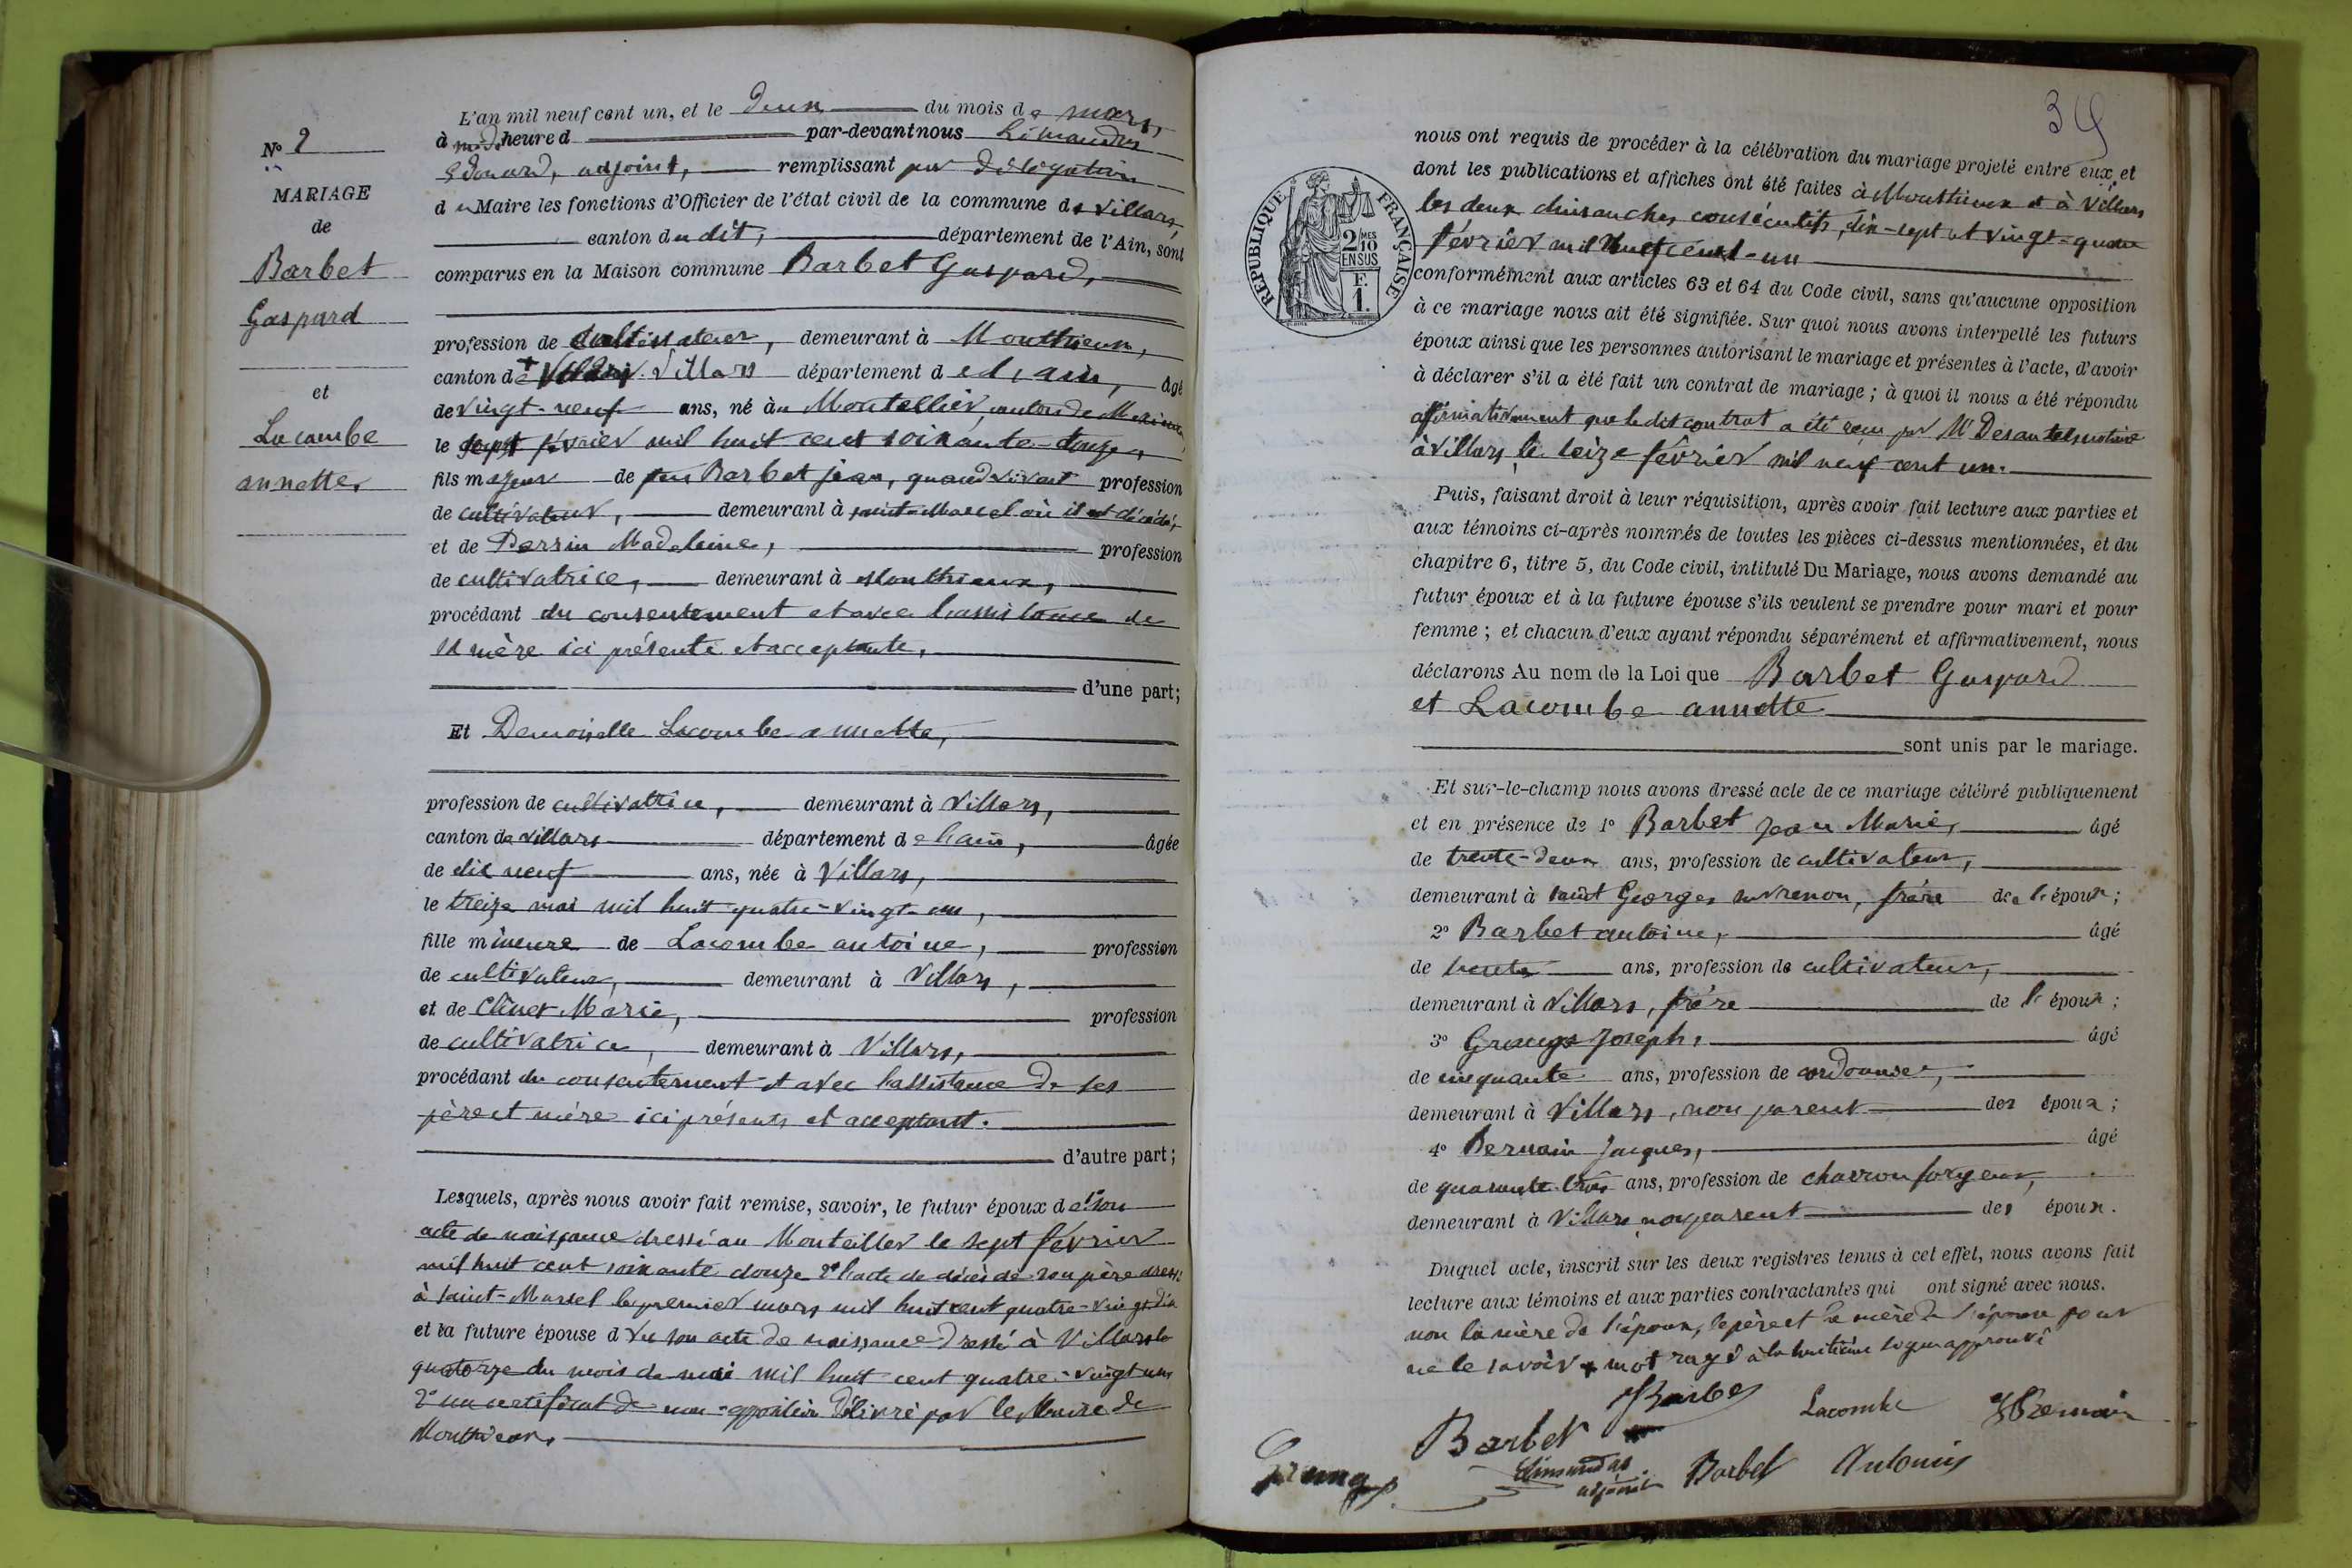 L'an mil neuf cent un, et le deux du mois de mars,
à midi heure d par-devant nous Limandas
Edouard, adjoint, remplissant par délégation
du Maire les fonctions d'Officier de l'état civil de la commune de Villars,
canton du dit, département de l'Ain, sont
comparus en la Maison commune Barbet Gaspard,
N° 2
MARIAGE
de
Barbet
Gaspard
et
Lacombe
annette
profession de Cultivateur, demeurant à Monthieux,
canton de + Villars département de l'ain, âgé
de vingt-neuf ans, né au Montellier, canton de Meximieux
le sept février mil huit cent soixante-douze,
fils majeur de feu Barbet jean, quand vivant profession
de cultivateur, demeurant à saint-Marcel où il est décédé,
et de Perrin Madeleine, profession
de cultivatrice, demeurant à Monthieux,
procédant du consentement et avec l'assistance de
sa mère ici présente et acceptante,
d'une part;
Et Demoiselle Lacombe annette,
profession de cultivatrice, demeurant à Villars,
canton de Villars département de l'ain, âgée
de dix neuf ans, née à Villars,
le treize mai mil huit quatre-vingt-un,
fille mineure de Lacombe antoine, profession
de cultivateur, demeurant à Villars,
et de Marie, profession
de cultivatrice, demeurant à Villars,
procédant du consentement et avec l'assistance de ses
père et mère ici présents et acceptant.
d'autre part;
Lesquels, après nous avoir fait remise, savoir, le futur époux de 1° son
acte de naissance dressé au Monteiller le sept février
mil huit cent soixante douze 2° l'acte de décès de son père dressé
à saint-Marcel le premier mars mil huit cent quatre-vingt-dix
et la future épouse d 1° de son acte de naissance dressé à Villars le
quatorze du mois de mai mil huit cent quatre-vingt-un
2° un certificat de non-opposition délivré par le Maire de
Monthieux.
34
RÉPUBLIQUE FRANÇAISE
2/10 MES EN SUS
F. 1.
nous ont requis de procéder à la célébration du mariage projeté entre eux, et
dont les publications et affiches ont été faites à Monthieux et à Villars
les deux dimanches consécutifs, dix-sept et vingt-quatre
février mil neuf cent-un
conformément aux articles 63 et 64 du Code civil, sans qu'aucune opposition
à ce mariage nous ait été signifiée. Sur quoi nous avons interpellé les futurs
époux ainsi que les personnes autorisant le mariage et présentes à l'acte, d'avoir
à déclarer s'il a été fait un contrat de mariage ; à quoi il nous a été répondu
affirmativement que le dit contrat a été reçu par Me Desautel notaire
à Villars, le seize février mil neuf cent un.
Puis, faisant droit à leur réquisition, après avoir fait lecture aux parties et
aux témoins ci-après nommés de toutes les pièces ci-dessus mentionnées, et du
chapitre 6, titre 5, du Code civil, intitulé Du Mariage, nous avons demandé au
futur époux et à la future épouse s'ils veulent se prendre pour mari et pour
femme ; et chacun d'eux ayant répondu séparément et affirmativement, nous
déclarons Au nom de la Loi que Barbet Gaspard
et Lacombe annette
sont unis par le mariage.
Et sur-le-champ nous avons dressé acte de ce mariage célébré publiquement
et en présence de 1° Barbet Jean Marie, âgé
de trente-deux ans, profession de cultivateur,
demeurant à saint Georges sur renon, frère de l'époux ;
2° Barbet antoine, âgé
de trente ans, profession de cultivateur,
demeurant à Villars, frère de l'époux ;
3° Joseph, âgé
de cinquante ans, profession de cordonnier,
demeurant à Villars, non parent des époux ;
4° Jacques, âgé
de quarante trois ans, profession de charron forgeur,
demeurant à Villars non parent des époux.
Duquel acte, inscrit sur les deux registres tenus à cet effet, nous avons fait
lecture aux témoins et aux parties contractantes qui ont signé avec nous.
non la mère de l'époux, le père et la mère de l'épouse pour
ne le savoir + mot rayé à la huitième ligne approuvé
Barbet
Lacombe
Barbet
Limandas
adjoint
Barbet Antonin